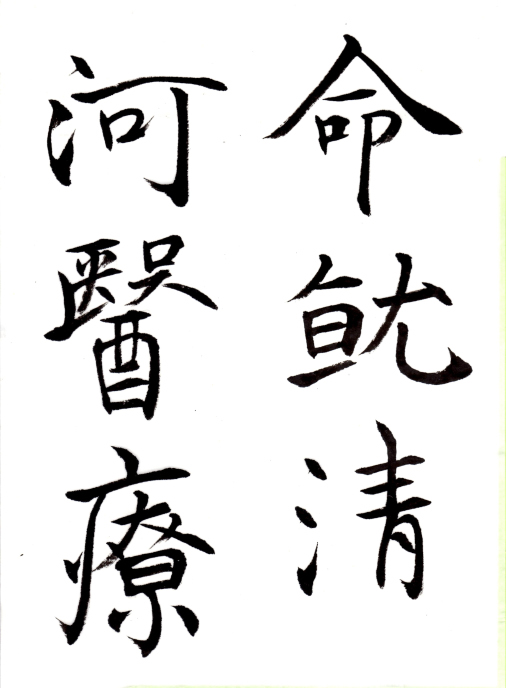 命就清
河醫療